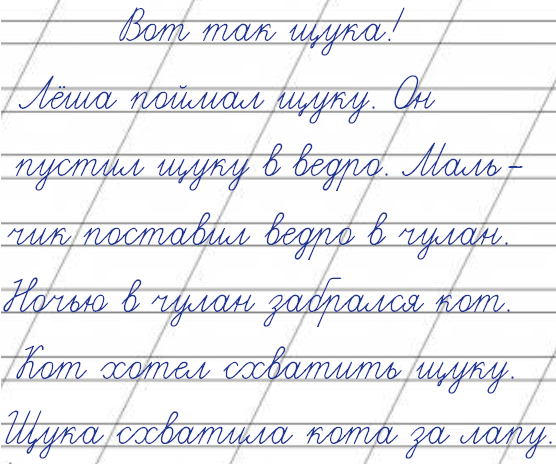 Вот так щука!
Лёша поймал щуку. Он
пустил щуку в ведро. Маль-
чик поставил ведро в чулан.
Ночью в чулан забрался кот.
Кот хотел схватить щуку.
Щука схватила кота за лапу.